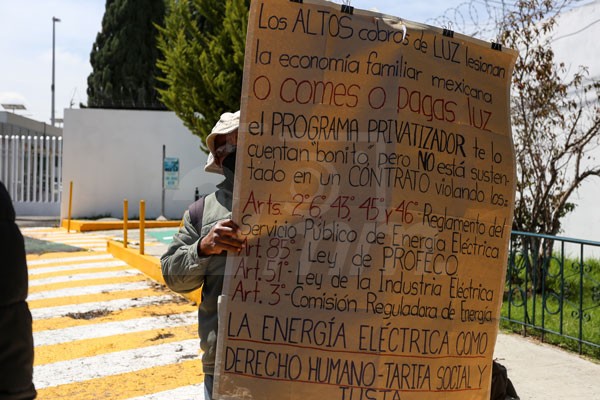 Los ALTOS cobros de LUZ lesionan
la economía familiar mexicana
O comes o pagas luz
el PROGRAMA PRIVATIZADOR te lo
cuentan "bonito", pero NO está susten-
tado en un CONTRATO violando los:
Arts. 2°6, 43°, 45° y 46°- Reglamento del
Servicio Público de Energía Eléctrica
Art. 85°- Ley de PROFECO
Art. 51°- Ley de la Industria Eléctrica
Art. 3°- Comisión Reguladora de Energía.
LA ENERGÍA ELÉCTRICA COMO
DERECHO HUMANO-TARIFA SOCIAL Y
JUSTA